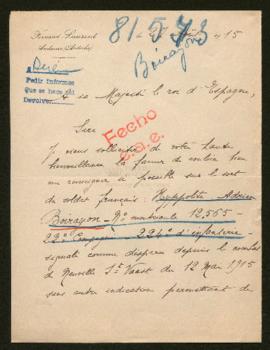 81-573
Boiragon
Fernand Laurent
15
A
Pedir Informes
Que se haga así
Devolver
A sa Majesté le roi d'Espagne,
Sire
Fecho
Je viens solliciter de votre haute
bienveillance la faveur de vouloir bien
me renseigner si possible sur le sort
du soldat français Hyppolite Adrien
Boiragon - No matricule 12,565 -
22e Compagnie 224e d'infanterie
signalé comme disparu depuis le combat
de Neuville St Vaast du 12 Mai 1915
sans autre indication permettant de